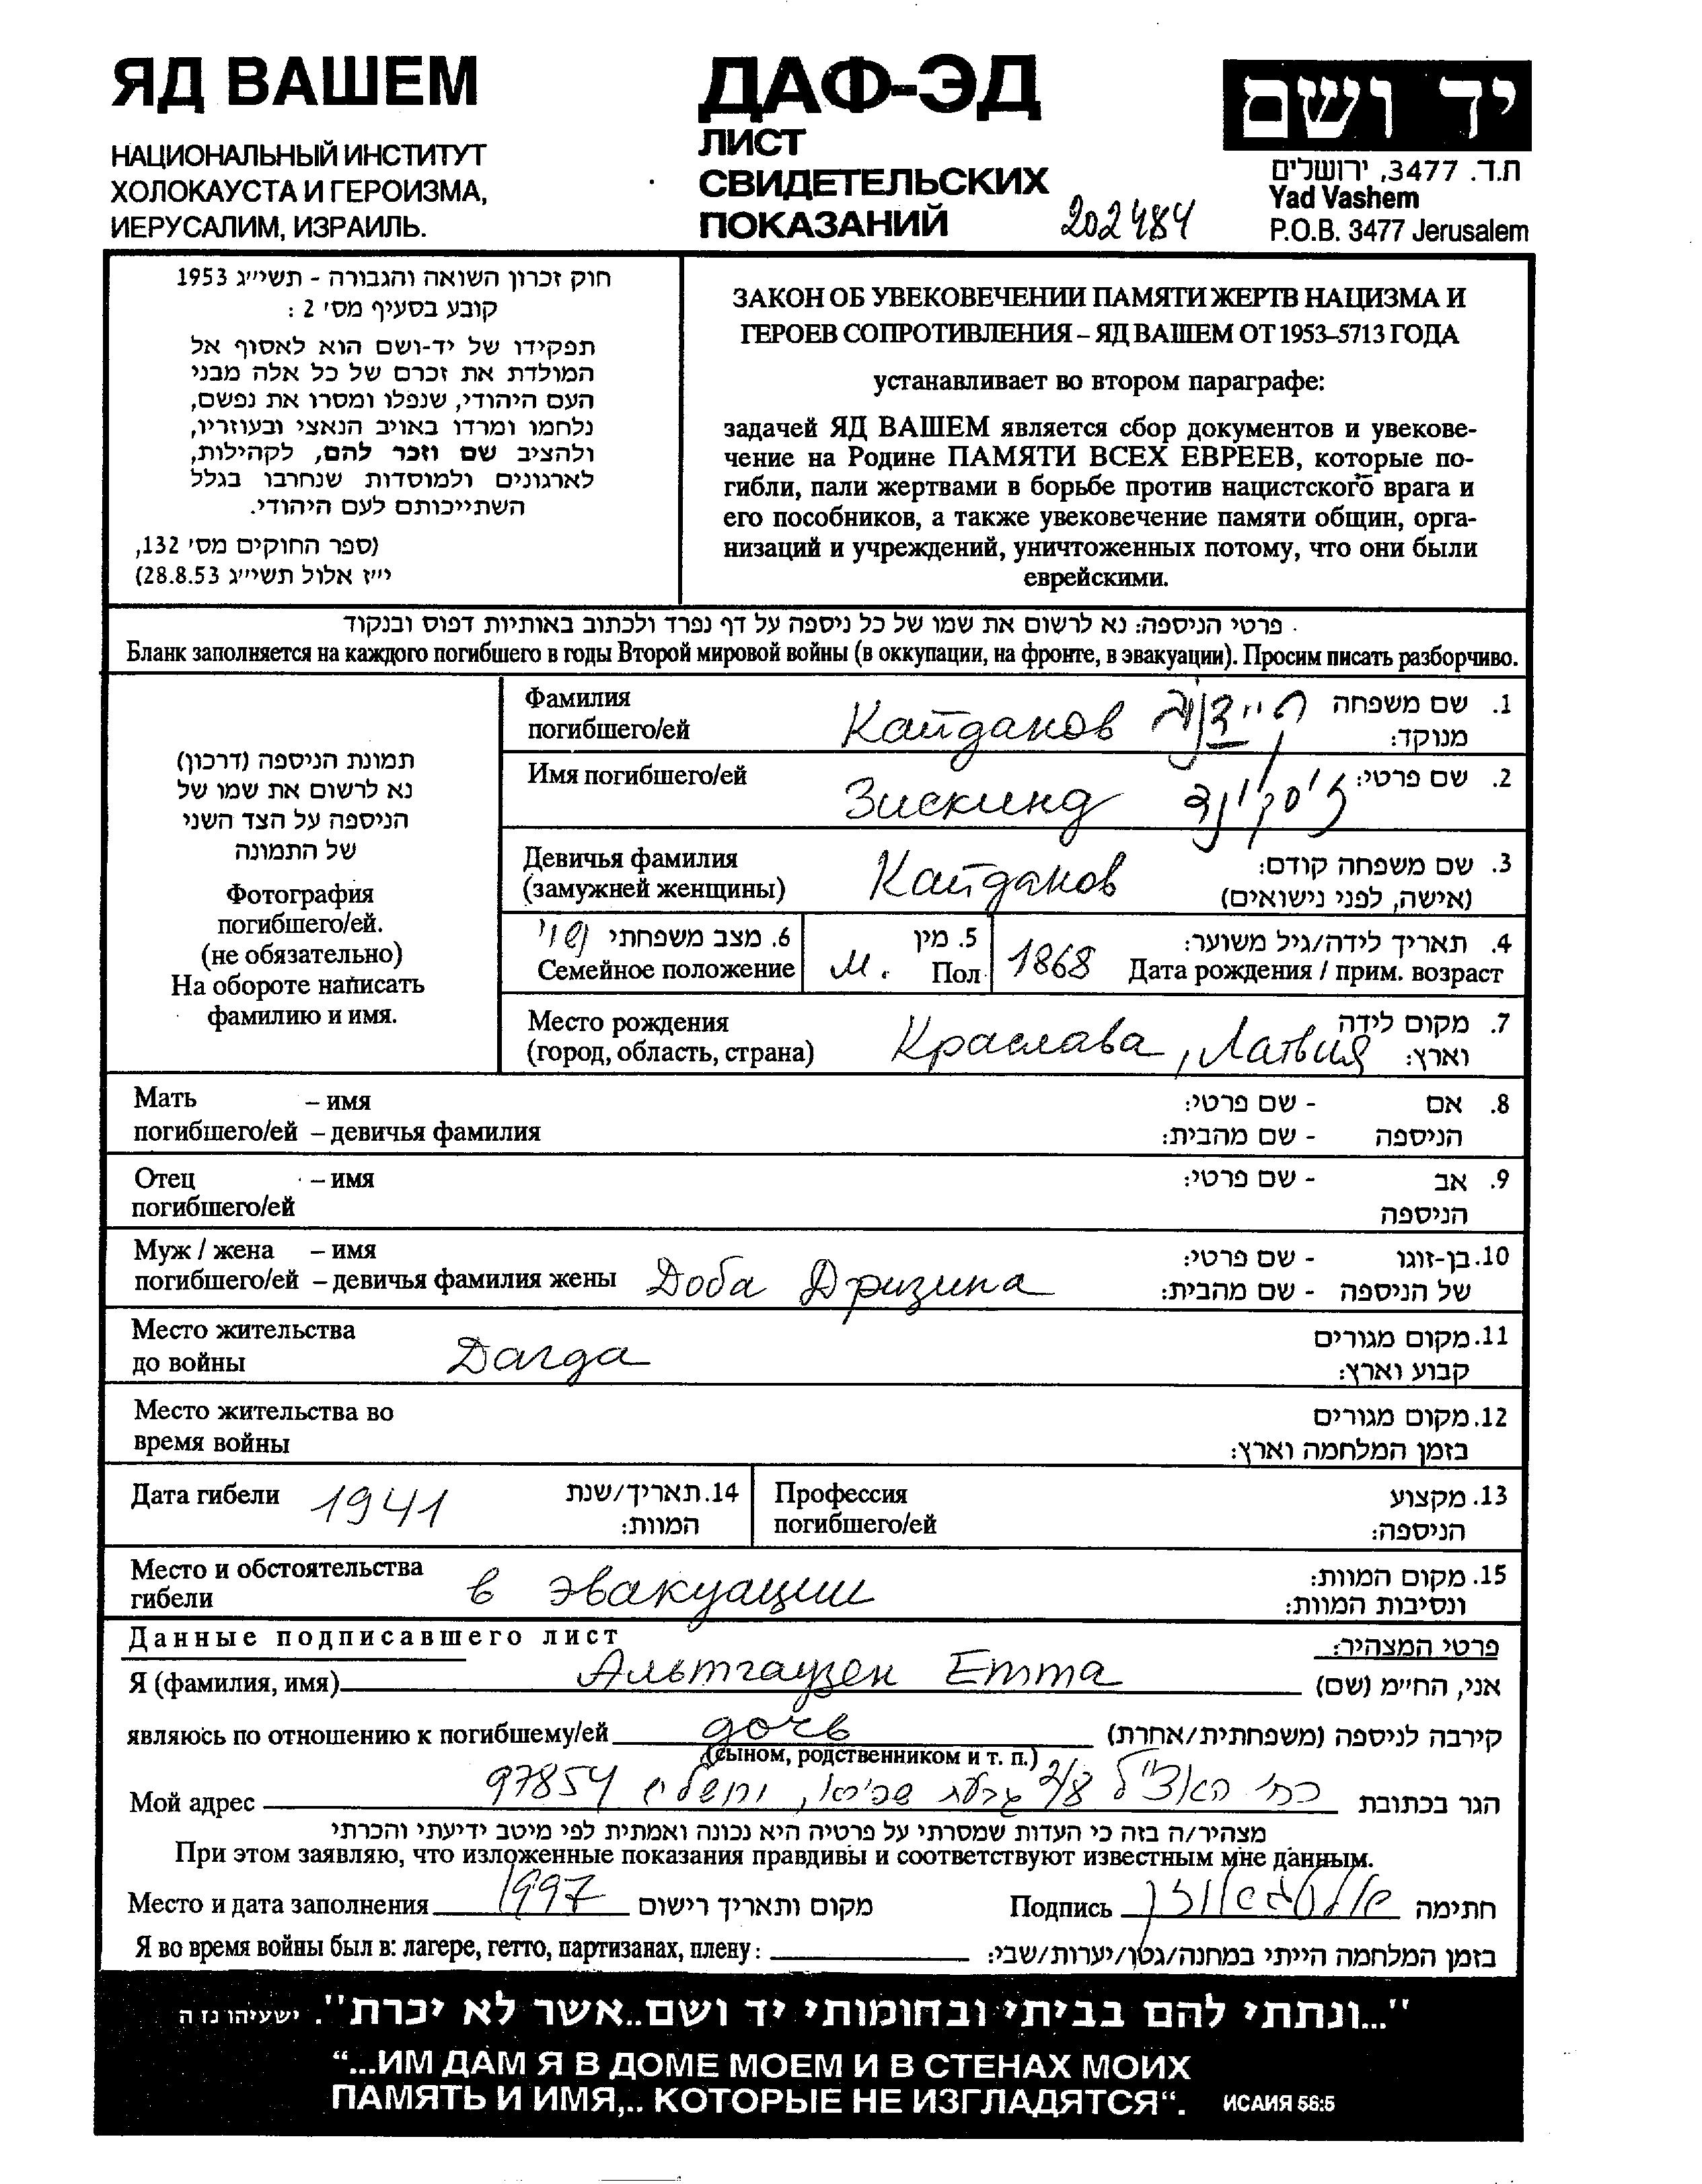 ЯД ВАШЕМ
НАЦИОНАЛЬНЫЙ ИНСТИТУТ
ХОЛОКАУСТА И ГЕРОИЗМА,
ИЕРУСАЛИМ, ИЗРАИЛЬ.
ДАФ-ЭД
ЛИСТ
СВИДЕТЕЛЬСКИХ
ПОКАЗАНИЙ
202484
יד ושם
ת.ד. 3477, ירושלים
Yad Vashem
P.O.B. 3477 Jerusalem
חוק זכרון השואה והגבורה - תשי״ג 1953
קובע בסעיף מס׳ 2 :
תפקידו של יד-ושם הוא לאסוף אל
המולדת את זכרם של כל אלה מבני
העם היהודי, שנפלו ומסרו את נפשם,
נלחמו ומרדו באויב הנאצי ובעוזריו,
ולהציב שם וזכר להם, לקהילות,
לארגונים ולמוסדות שנחרבו בגלל
השתייכותם לעם היהודי.
(ספר החוקים מס׳ 132,
י״ז אלול תשי״ג 28.8.53)
ЗАКОН ОБ УВЕКОВЕЧЕНИИ ПАМЯТИ ЖЕРТВ НАЦИЗМА И
ГЕРОЕВ СОПРОТИВЛЕНИЯ – ЯД ВАШЕМ ОТ 1953–5713 ГОДА
устанавливает во втором параграфе:
задачей ЯД ВАШЕМ является сбор документов и увекове-
чение на Родине ПАМЯТИ ВСЕХ ЕВРЕЕВ, которые по-
гибли, пали жертвами в борьбе против нацистского врага и
его пособников, а также увековечение памяти общин, орга-
низаций и учреждений, уничтоженных потому, что они были
еврейскими.
פרטי הניספה: נא לרשום את שמו של כל ניספה על דף נפרד ולכתוב באותיות דפוס ובנקוד
Бланк заполняется на каждого погибшего в годы Второй мировой войны (в оккупации, на фронте, в эвакуации). Просим писать разборчиво.
תמונת הניספה (דרכון)
נא לרשום את שמו של
הניספה על הצד השני
של התמונה
Фотография
погибшего/ей.
(не обязательно)
На обороте написать
фамилию и имя.
Фамилия
погибшего/ей
Кайданов
1. שם משפחה
מנוקד:
Имя погибшего/ей Зискинд זיסקינד 2. שם פרטי:
Девичья фамилия
(замужней женщины)
Кайданов
3. שם משפחה קודם:
(אישה, לפני נישואים)
6. מצב משפחתי נשוי
Семейное положение
5. מין
М. Пол
4. תאריך לידה/גיל משוער:
1868 Дата рождения / прим. возраст
Место рождения
(город, область, страна)
Краслава, Латвия
7. מקום לידה
וארץ:
Мать – имя
погибшего/ей – девичья фамилия
8. אם - שם פרטי:
הניספה - שם מהבית:
Отец – имя
погибшего/ей
9. אב - שם פרטי:
הניספה
Муж / жена – имя
погибшего/ей – девичья фамилия жены Доба Дризина
10. בן-זוגו - שם פרטי:
של הניספה - שם מהבית:
Место жительства
до войны
Дагда
11. מקום מגורים
קבוע וארץ:
Место жительства во
время войны
12. מקום מגורים
בזמן המלחמה וארץ:
Дата гибели 1941
14. תאריך/שנת
המוות:
Профессия
погибшего/ей
13. מקצוע
הניספה:
Место и обстоятельства
гибели
в эвакуации
15. מקום המוות:
ונסיבות המוות:
Данные подписавшего лист
פרטי המצהיר:
Я (фамилия, имя) Альтгаузен Етта אני, הח״מ (שם)
являюсь по отношению к погибшему/ей дочь קירבה לניספה (משפחתית/אחרת)
(сыном, родственником и т. п.)
Мой адрес 97854 הגר בכתובת
מצהיר/ה בזה כי העדות שמסרתי על פרטיה היא נכונה ואמתית לפי מיטב ידיעתי והכרתי
При этом заявляю, что изложенные показания правдивы и соответствуют известным мне данным.
Место и дата заполнения 1997 מקום ותאריך רישום Подпись חתימה
Я во время войны был в: лагере, гетто, партизанах, плену: בזמן המלחמה הייתי במחנה/גטו/יערות/שבי:
"...ונתתי להם בביתי ובחומותי יד ושם..אשר לא יכרת". ישעיהו נז ה
“...ИМ ДАМ Я В ДОМЕ МОЕМ И В СТЕНАХ МОИХ
ПАМЯТЬ И ИМЯ,.. КОТОРЫЕ НЕ ИЗГЛАДЯТСЯ“. ИСАИЯ 56:5